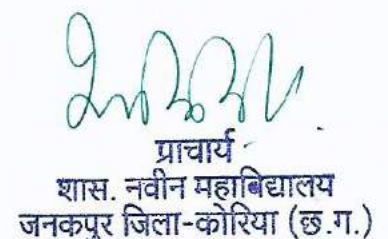 प्राचार्य
शास. नवीन महाबिद्यालय
जनकपुर जिला-कोरिया (छ.ग.)